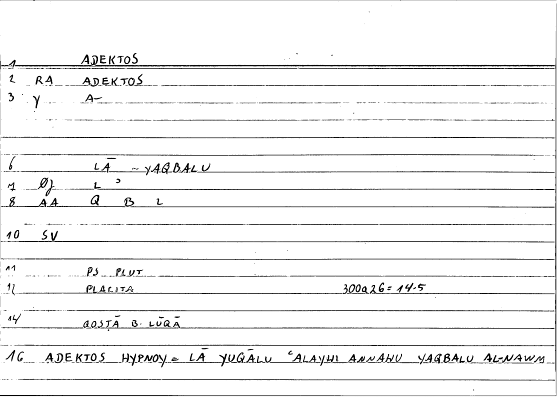 1 ADEKTOS
2 RA ADEKTOS
3 γ A-
6 LĀ ~ YAQBALU
7 Øȷ L ᵓ
8 AA Q B L
10 SV
11 PS PLUT
12 PLACITA 300a26 = 14.5
14 QOSṬĀ B. LŪQĀ
16 ADEKTOS HYPNOY = LĀ YUQĀLU ᶜALAYHI ANNAHU YAQBALU AL-NAWM